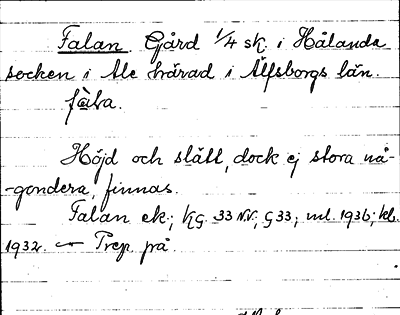 Falan. Gård 1/4 sk. i Hålanda
socken i Ale härad i Älfsborgs län.
fàla.
Höjd och slätt, dock ej stora nå-
-gondera, finnas.
Falan ek; KG. 33 N.V., G 33; ml. 1936; kb.
1932. — Prep. på.